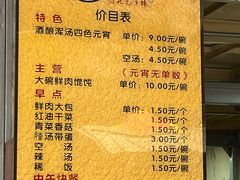 价目表
特色
酒酿浑汤四色元宵 单价:9.00元/碗
4.50元/碗
空汤:4.50元/碗
主营 (元宵无单数)
大碗鲜肉馄饨 单价:10.00元/碗
早点
鲜肉大包 1.50元/个
红油干菜 1.50元/个
青菜香菇 1.50元/个
汤带蛋 3.00元/个
空汤 1.50元/碗
辣汤 1.50元/碗
稀饭 1.50元/碗
中午快餐